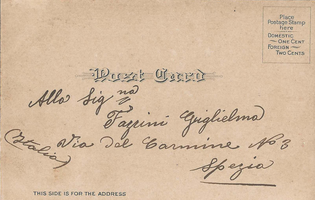 Place
Postage Stamp
Here
DOMESTIC
ONE CENT
FOREIGN
TWO CENTS
Post Card
Alla Signa
Fazzini Guglielma
(Italia) Via del Carmine No 3
Spezia
THIS SIDE IS FOR THE ADDRESS